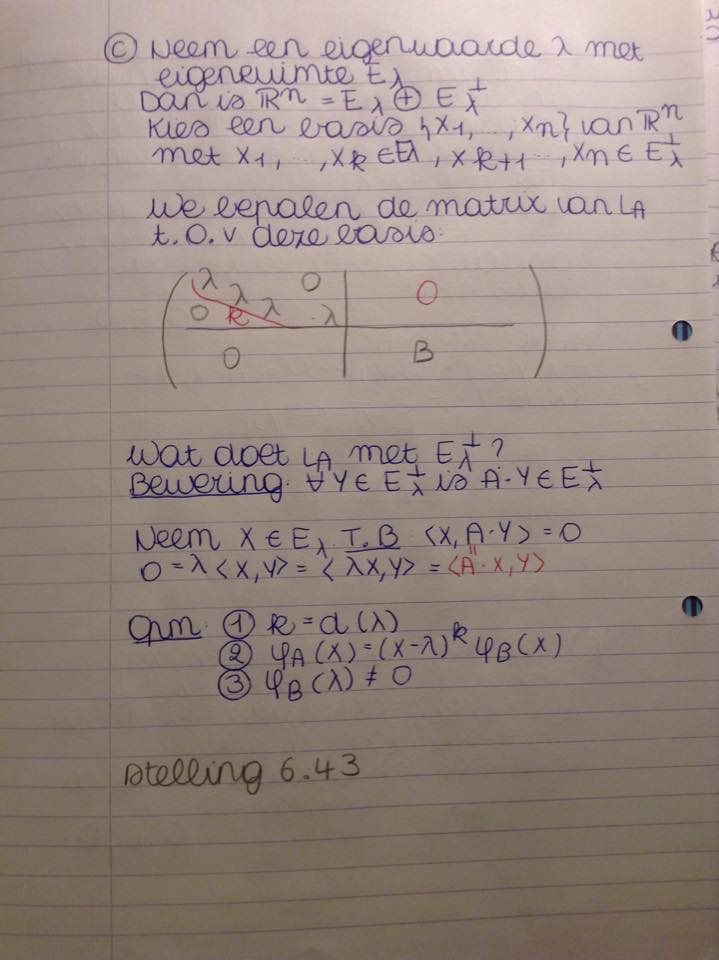 ⓒ Neem een eigenwaarde λ met
eigenruimte Eλ
Dan is ℝⁿ = Eλ ⊕ Eλ^⊥
Kies een basis {x1, ..., xn} van ℝⁿ
met x1, ..., xk ∈ Eλ, xk+1 ..., xn ∈ Eλ^⊥
We bepalen de matrix van LA
t.o.v deze basis:
λ λ 0 | 0
0 k λ .λ
0 | B
Wat doet LA met Eλ^⊥?
Bewering: ∀ Y ∈ Eλ^⊥ is A·Y ∈ Eλ^⊥
Neem X ∈ Eλ T.B ⟨X, A·Y⟩ = 0
"
0 = λ⟨X,Y⟩ = ⟨λX,Y⟩ = ⟨A·X,Y⟩
Opm: ① k = d(λ)
② φA(X) = (X-λ)^k φB(X)
③ φB(λ) ≠ 0
Stelling 6.43